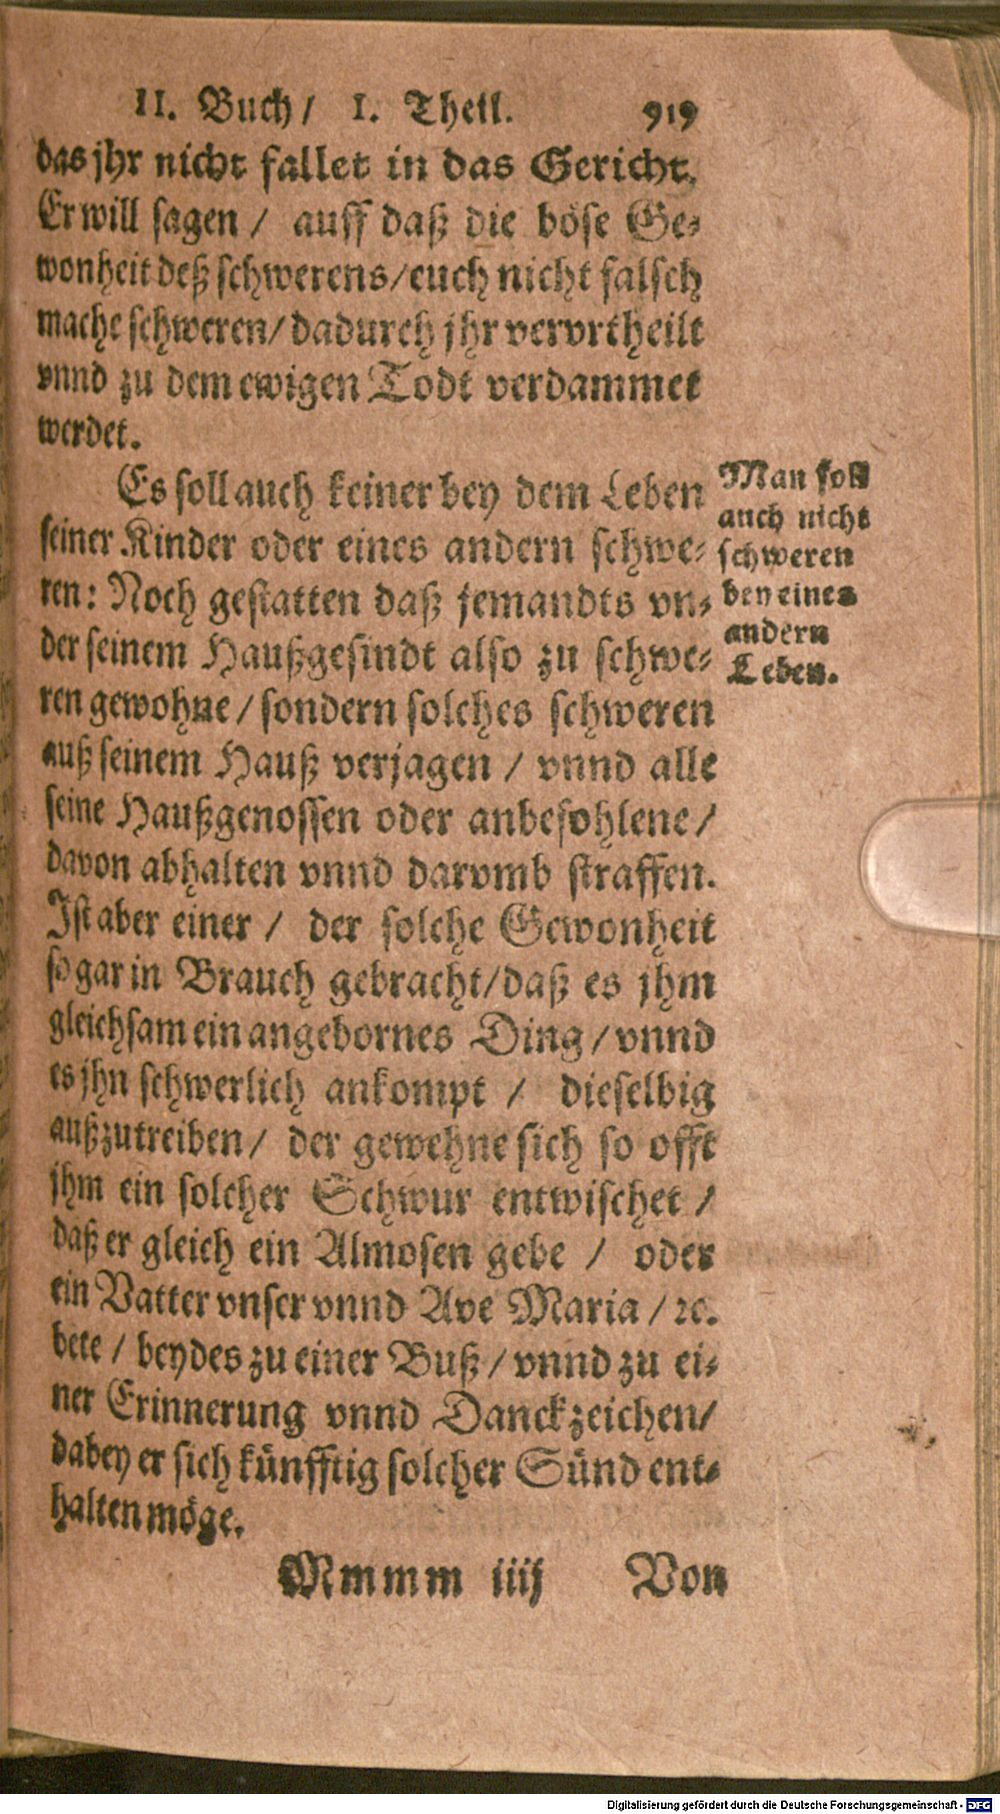 II. Buch/ I. Theil. 919
das jhr nicht fallet in das Gericht.
Er will sagen / auff daß die böse Ge-
wonheit deß schwerens/euch nicht falsch
mache schweren/dadurch jhr vervrtheilt
vnnd zu dem ewigen Todt verdammet
werdet.
Es soll auch keiner bey dem Leben
seiner Kinder oder eines andern schwe-
ren: Noch gestatten daß jemandts vn-
der seinem Haußgesindt also zu schwe-
ren gewohne/sondern solches schweren
auß seinem Hauß verjagen / vnnd alle
seine Haußgenossen oder anbefohlene/
davon abhalten vnnd darvmb straffen.
Ist aber einer / der solche Gewonheit
so gar in Brauch gebracht/daß es jhm
gleichsam ein angebornes Ding/vnnd
es jhn schwerlich ankompt / dieselbig
außzutreiben/ der gewehne sich so offt
jhm ein solcher Schwur entwischet /
daß er gleich ein Almosen gebe / oder
ein Vatter vnser vnnd Ave Maria/ꝛc.
bete/beydes zu einer Buß/vnnd zu ei-
ner Erinnerung vnnd Danckzeichen/
dabey er sich künfftig solcher Sünd ent-
halten möge.
Mmmm iiij Von
Man soll
auch nicht
schweren
bey eines
andern
Leben.
Digitalisierung gefördert durch die Deutsche Forschungsgemeinschaft - DFG